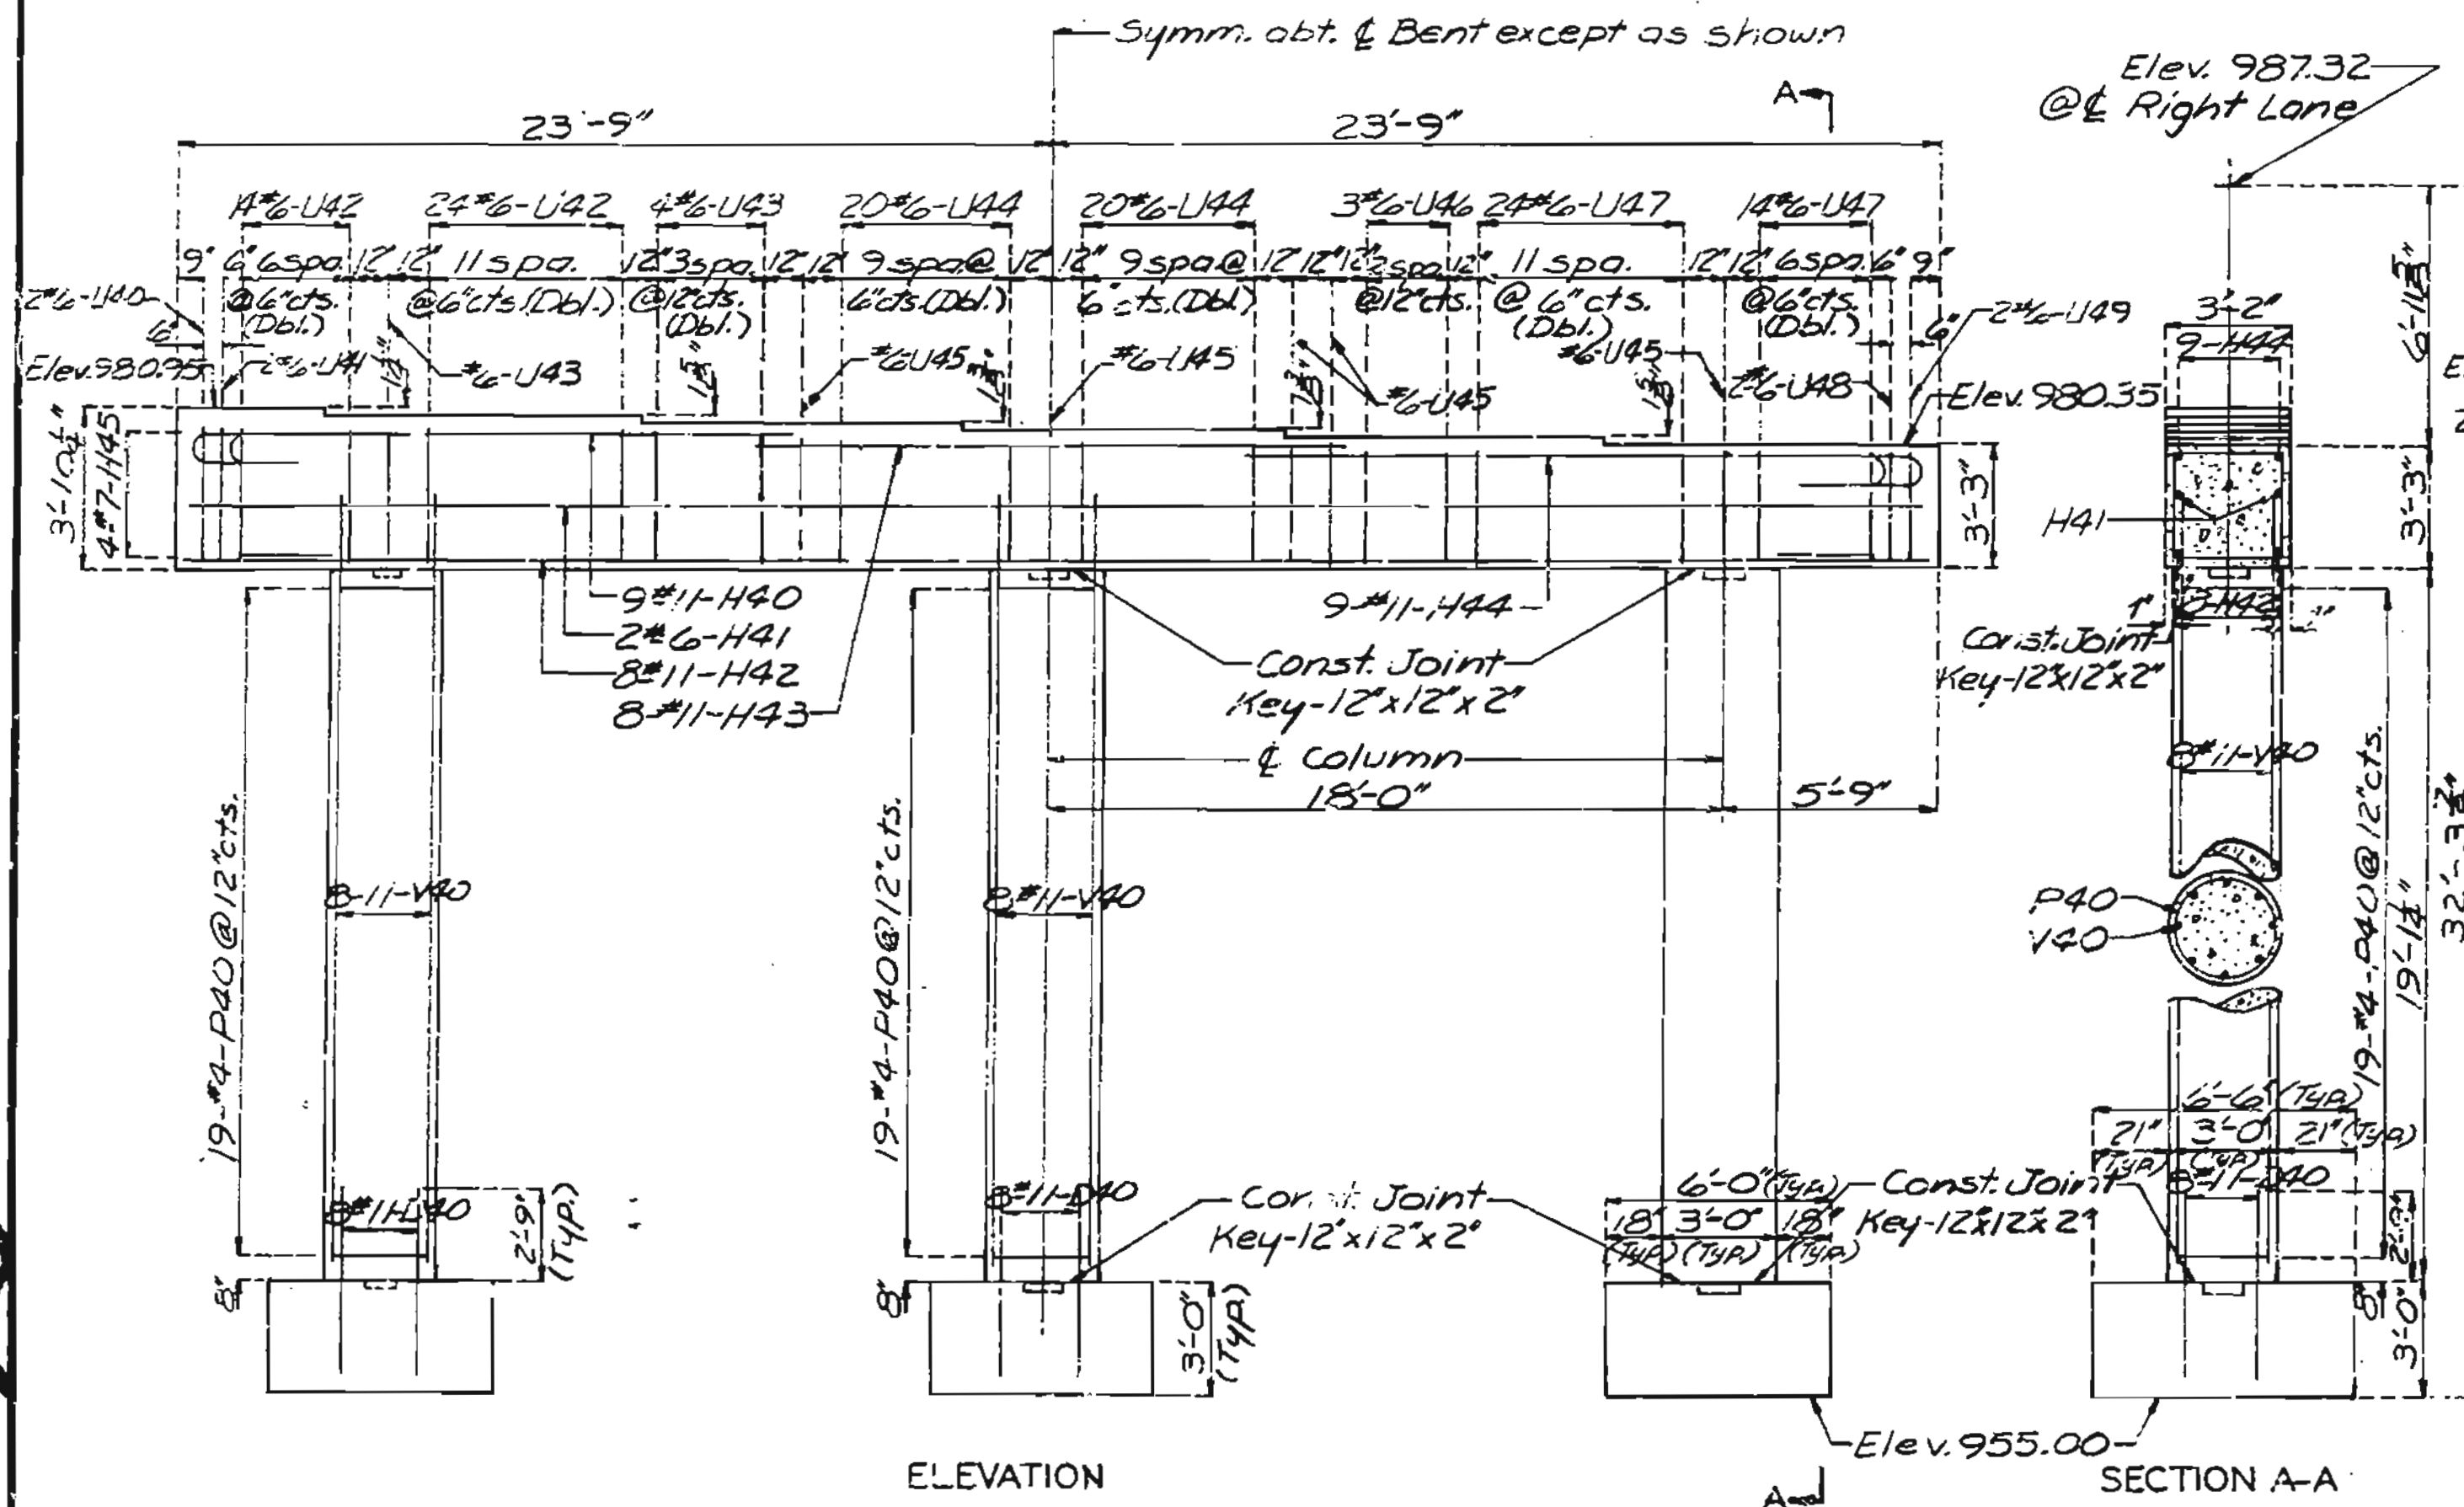 Symm. abt. ℄ Bent except as shown
Elev. 987.32
@ ℄ Right Lane
A
23'-9"
23'-9"
14#6-U42
24#6-U42
4#6-U43
20#6-U44
20#6-U44
3#6-U46
24#6-U47
14#6-U47
9" 6" 6spa. 12" 12" 11 spa. 12" 3spa. 12" 12" 9 spa.@ 12" 12" 9 spa.@ 12" 12" 12" 2spa. 12" 11 spa. 12" 12" 6spa. 6" 9"
@6"cts. (Dbl.)
@6"cts.(Dbl.)
@12"cts. (Dbl.)
6"cts.(Dbl.)
6"cts.(Dbl.)
@12"cts.
@ 6"cts. (Dbl.)
@6"cts. (Dbl.)
2#6-U40
6"
Elev.980.95
2#6-U41
#6-U43
#6U45
#6-U45
#6-U45
#6-U45
2#6-U48
6"
2#6-U49
Elev.980.35
3'-2"
9-H44
4-#7-H45
3'-3"
3'-3"
H41
9#11-H40
2#6-H41
8#11-H42
8-#11-H43
9-#11-H44
Const. Joint
Key-12"x12"x2"
1"
Const. Joint
Key-12"x12"x2"
℄ Column
18'-0"
5'-9"
8#11-V40
19-#4-P40@12"cts.
8-11-V40
19-#4-P40@12"cts.
8#11-V40
P40
V40
19-#4-P40@12"cts.
19'-1¼"
8#11-D40
2'-9"
(Typ.)
8"
8#11-D40
8"
3'-0"
(Typ.)
Const. Joint
Key-12"x12"x2"
6'-0"(Typ.)
18" 3'-0" 18"
(Typ.) (Typ.) (Typ.)
Const. Joint
Key-12"x12"x2"
6'-6" (Typ.)
21" 3'-0" 21"(Typ.)
(Typ.) (Typ.)
8-#11-D40
2'-9"
8"
3'-0"
Elev. 955.00
ELEVATION
A
SECTION A-A